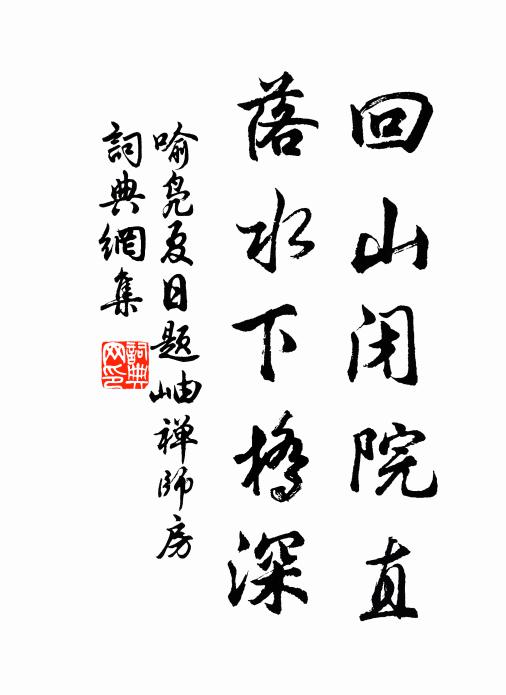 回山闭院直
落水下桥深
喻凫夏日题岫禅师房
詞典網集
詞典网印